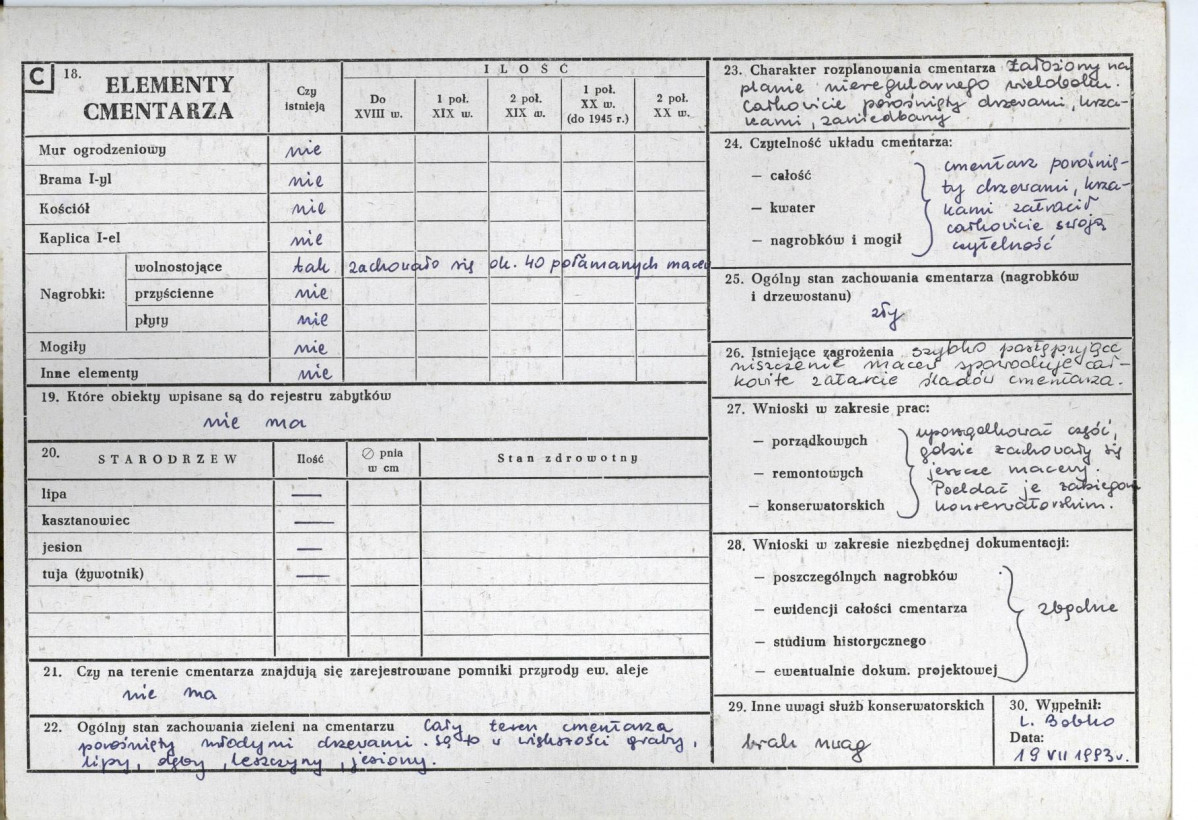 C 18. ELEMENTY CMENTARZA
Czy istnieją
ILOŚĆ
Do XVIII w.
1 poł. XIX w.
2 poł. XIX w.
1 poł. XX w. (do 1945 r.)
2 poł. XX w.
Mur ogrodzeniowy nie
Brama I-yl nie
Kościół nie
Kaplica I-el nie
Nagrobki: wolnostojące tak zachowało się ok. 40 połamanych macew
przyścienne nie
płyty nie
Mogiły nie
Inne elementy nie
19. Które obiekty wpisane są do rejestru zabytków
nie ma
20. STARODRZEW Ilość ∅ pnia w cm Stan zdrowotny
lipa —
kasztanowiec —
jesion —
tuja (żywotnik) —
21. Czy na terenie cmentarza znajdują się zarejestrowane pomniki przyrody ew. aleje
nie ma
22. Ogólny stan zachowania zieleni na cmentarzu Cały teren cmentarza
porośnięty młodymi drzewami. Są to w większości graby,
lipy, dęby, leszczyny, jesiony.
23. Charakter rozplanowania cmentarza Założony na
planie nieregularnego wieloboku.
Całkowicie porośnięty drzewami, krza-
kami, zaniedbany
24. Czytelność układu cmentarza:
— całość
— kwater
— nagrobków i mogił
cmentarz porośnię-
ty drzewami, krza-
kami zatracił
całkowicie swoją
czytelność
25. Ogólny stan zachowania cmentarza (nagrobków
i drzewostanu)
zły
26. Istniejące zagrożenia szybko postępujące
niszczenie macew spowoduje cał-
kowite zatarcie śladów cmentarza.
27. Wnioski w zakresie prac:
— porządkowych
— remontowych
— konserwatorskich
uporządkować część,
gdzie zachowały się
jeszcze macewy.
Poddać je zabiegom
konserwatorskim.
28. Wnioski w zakresie niezbędnej dokumentacji:
— poszczególnych nagrobków
— ewidencji całości cmentarza
— studium historycznego
— ewentualnie dokum. projektowej
zbędne
29. Inne uwagi służb konserwatorskich
brak uwag
30. Wypełnił:
L. Bobko
Data:
19 VII 1993 r.